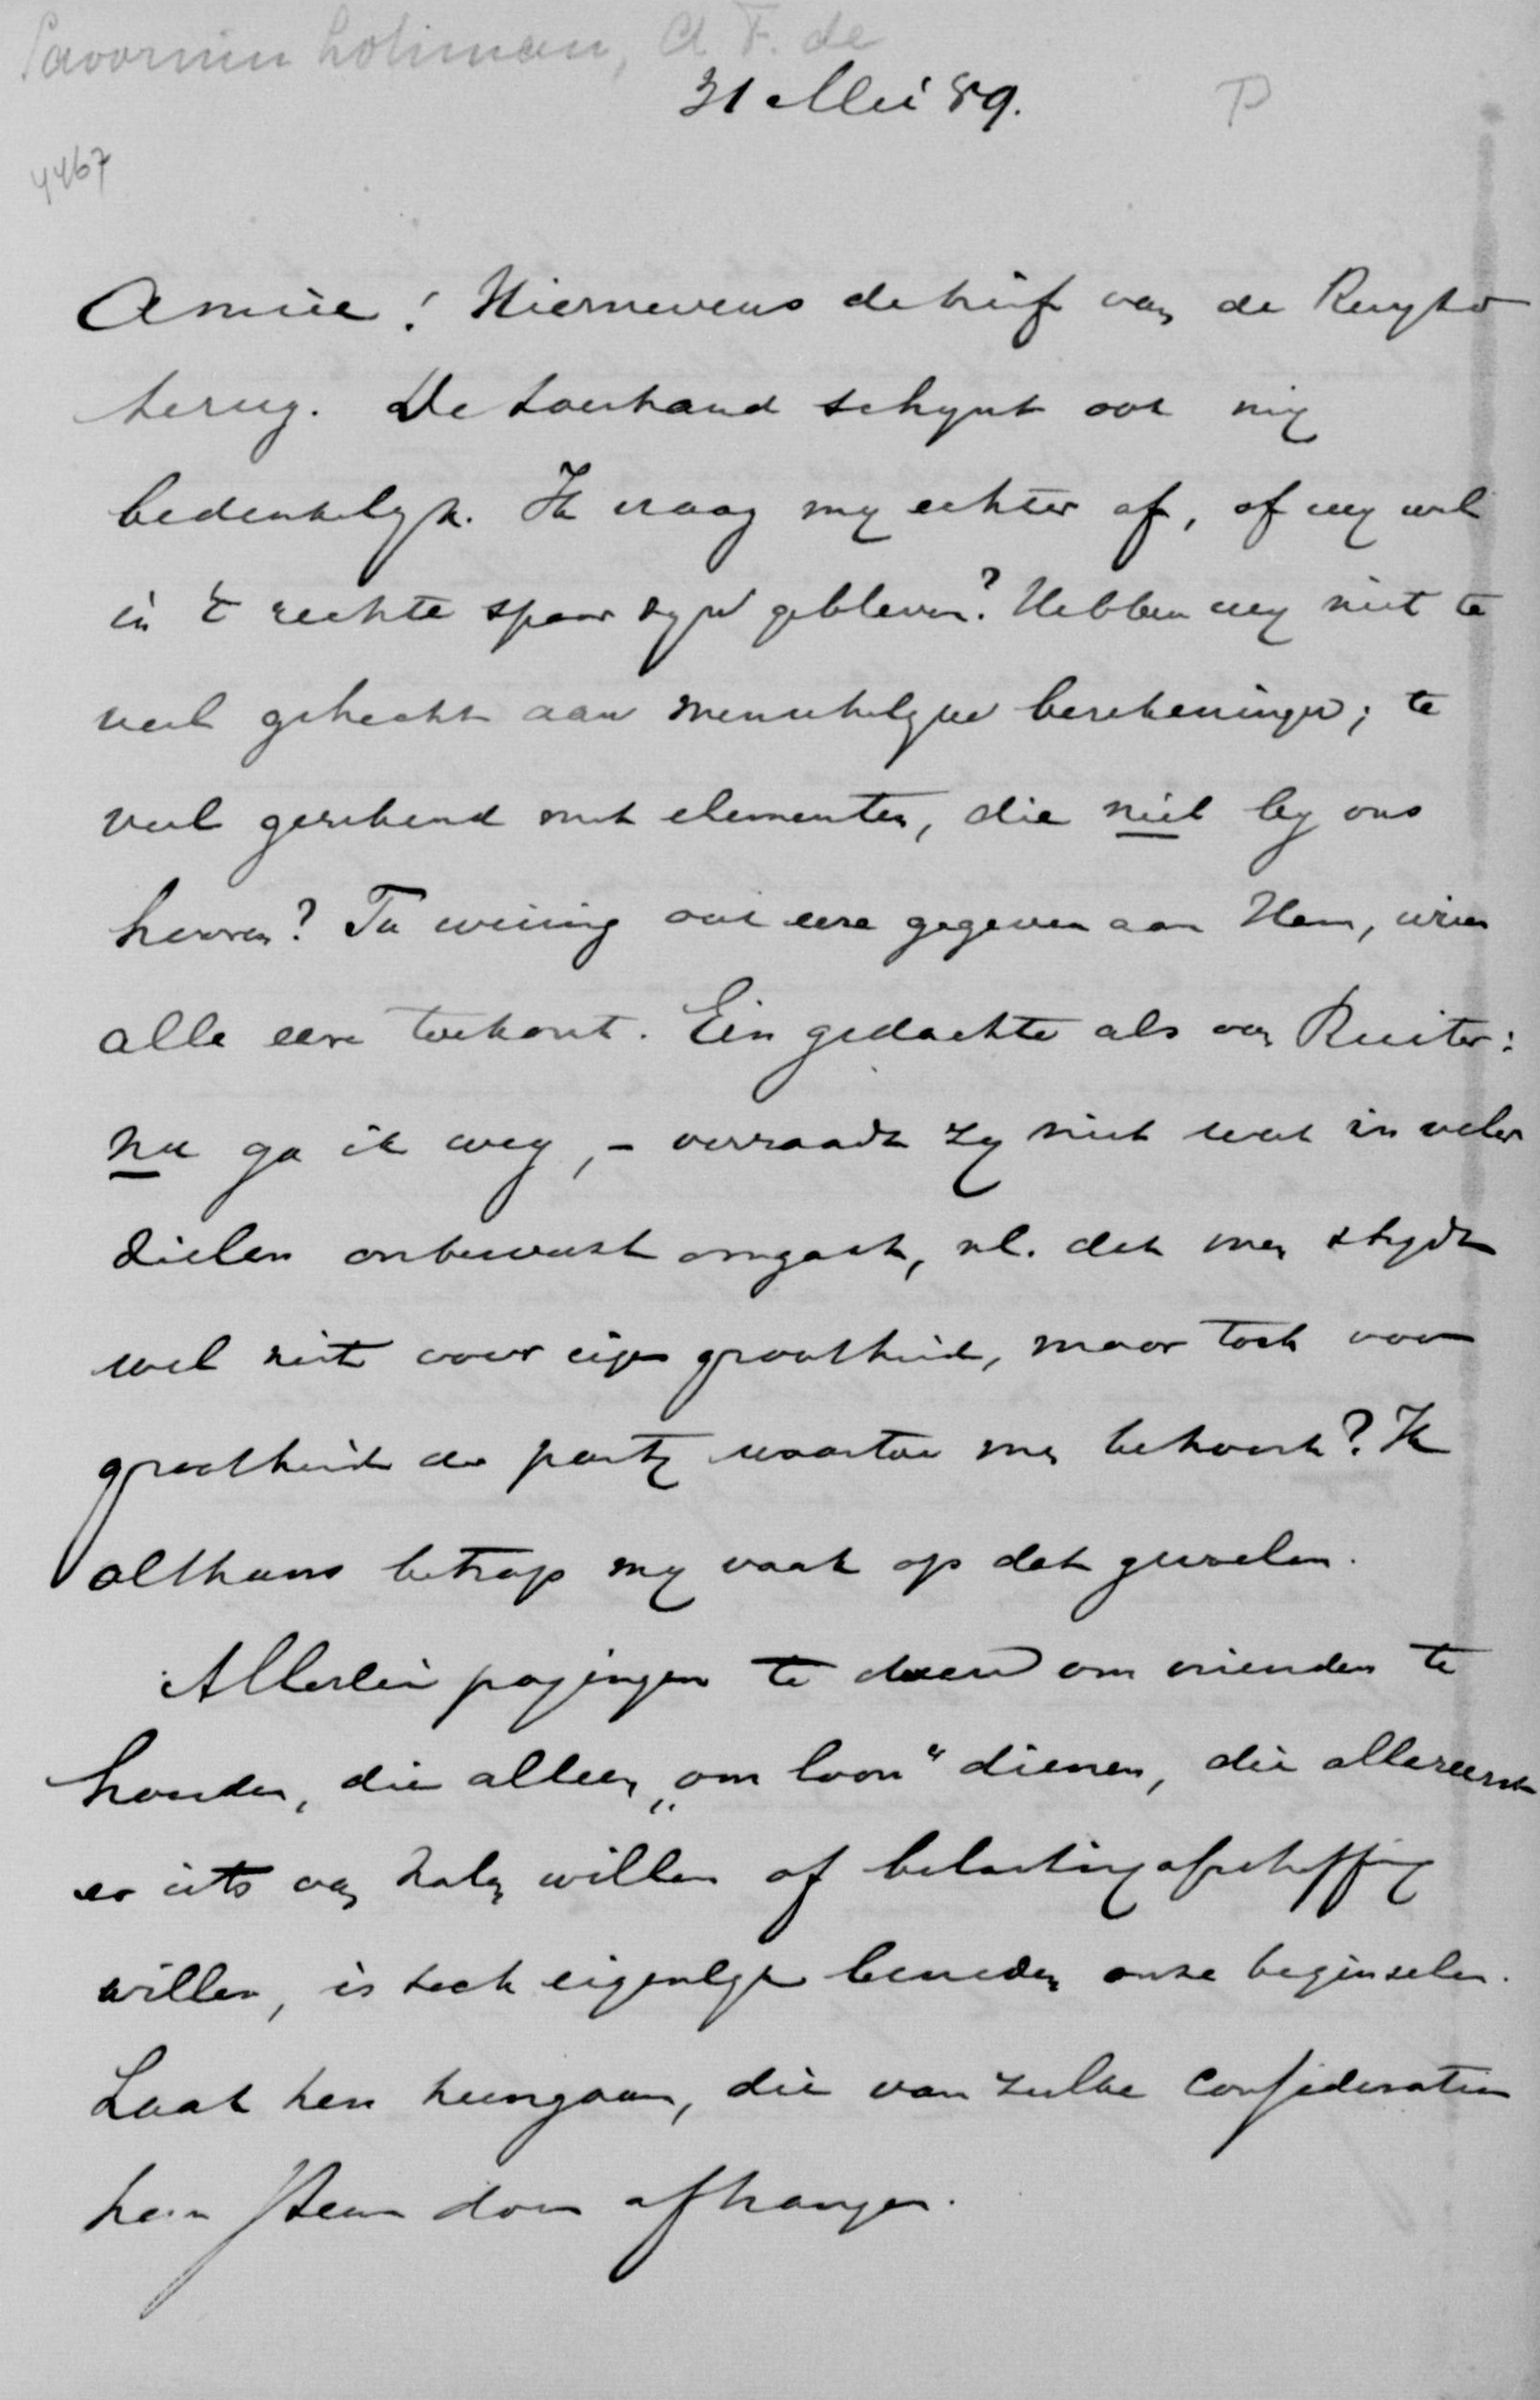 Savornin Lohman, A. F. de
31 Mei 89.
P
4467
Amice! Hiernevens de brief van de Ruyter
terug. De toestand schynt ook my
bedenkelyk. Ik vraag my echter af, of wy wel
in 't rechte spoor zyn gebleven? Hebben wy niet te
veel gehecht aan menschelyke berekeningen; te
veel gerekend met elementen, die niet by ons
hooren? Te weinig ook eere gegeven aan Hem, wien
alle eere toekomt. Een gedachte als van Ruiter:
nu ga ik weg, – verraadt zy niet wat in veler
zielen onbewust omgaat, nl. dat men strydt
wel niet voor eigen grootheid, maar toch voor
grootheid der party waartoe men behoort? Ik
althans betrap my vaak op dat gevoelen.
Allerlei pogingen te doen om vrienden te
houden, die alleen „om loon" dienen, die allereerst
er iets van halen willen of belastingafschaffing
willen, is toch eigenlyk beneden onze beginselen.
Laat hen heengaan, die van zulke consideratien
hun steun doen afhangen.